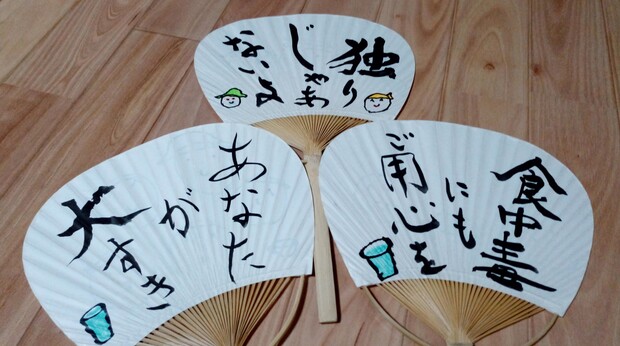 独り
じゃあ
ないよ
あなた
が
大すき
食中毒
にも
ご用心を